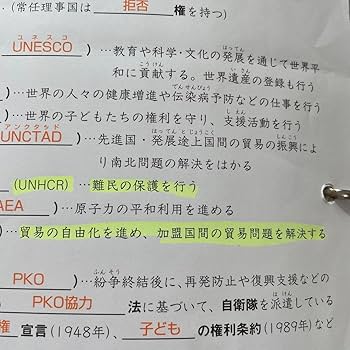 (常任理事国は 拒否 権を持つ)
ユネスコ
UNESCO )…教育や科学・文化の発展を通じて世界平
和に貢献する。世界遺産の登録も行う
)…世界の人々の健康増進や伝染病予防などの仕事を行う
)…世界の子どもたちの権利を守り、支援活動を行う
アンクタッド
UNCTAD )…先進国・発展途上国間の貿易の振興によ
り南北問題の解決をはかる
(UNHCR)…難民の保護を行う
AEA )…原子力の平和利用を進める
)…貿易の自由化を進め、加盟国間の貿易問題を解決する
PKO )…紛争終結後に、再発防止や復興支援などの
PKO協力 法に基づいて、自衛隊を派遣している
権 宣言(1948年)、 子ども の権利条約(1989年)など